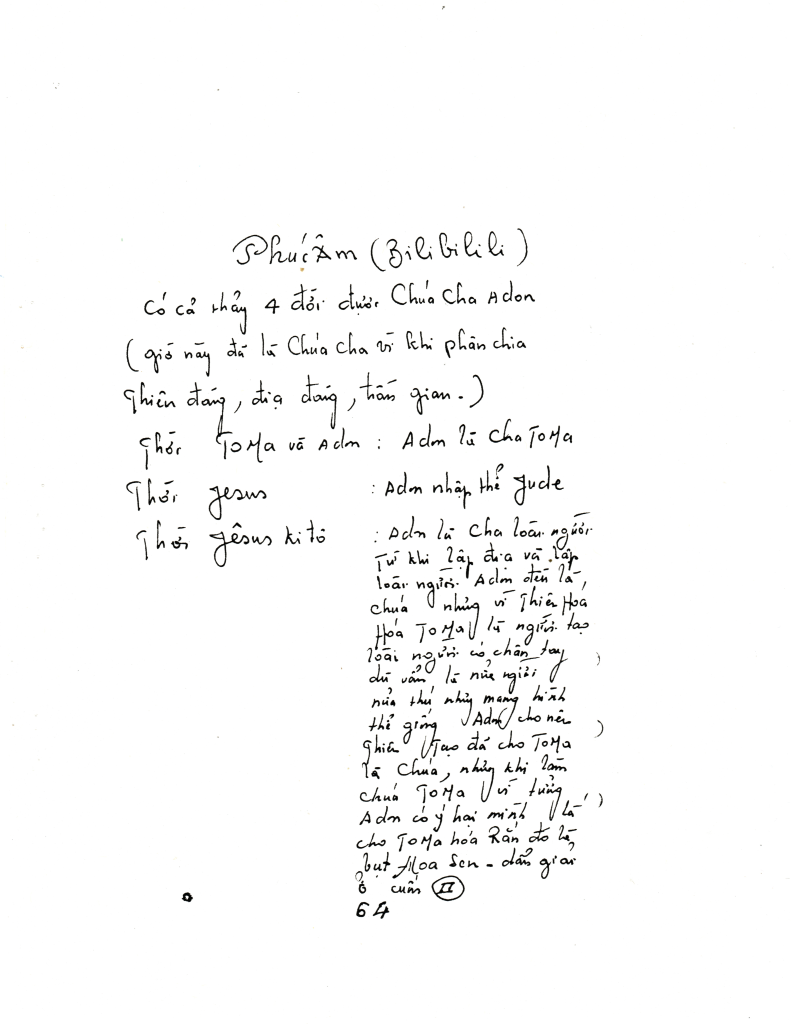 Phúc Âm (Bilibilili)
Có cả thảy 4 đời được Chúa Cha Adon
(giờ này đã là Chúa cha vì khi phân chia
Thiên đáng, địa đáng, trần gian.)
Thời ToMa và Adm : Adm là Cha ToMa
Thời Jesus : Adm nhập thể Jude
Thời Jêsus kitô : Adm là Cha loài người
Từ khi lập địa và lập
loài người. Adm đến là,
chúa nhưng vì Thiên Hoá
Hoá ToMa là người tạo
loài người có chân tay
dù vẫn là nửa người
nửa thú nhưng mang hình
thể giống Adm cho nên
Thiên Tạo đã cho ToMa
là Chúa, nhưng khi làm
chúa ToMa vì tưởng
Adm có ý hại mình là
cho ToMa hóa Rắn đó là
bụt Hoa Sen - dẫn giải
ở cuốn II
64